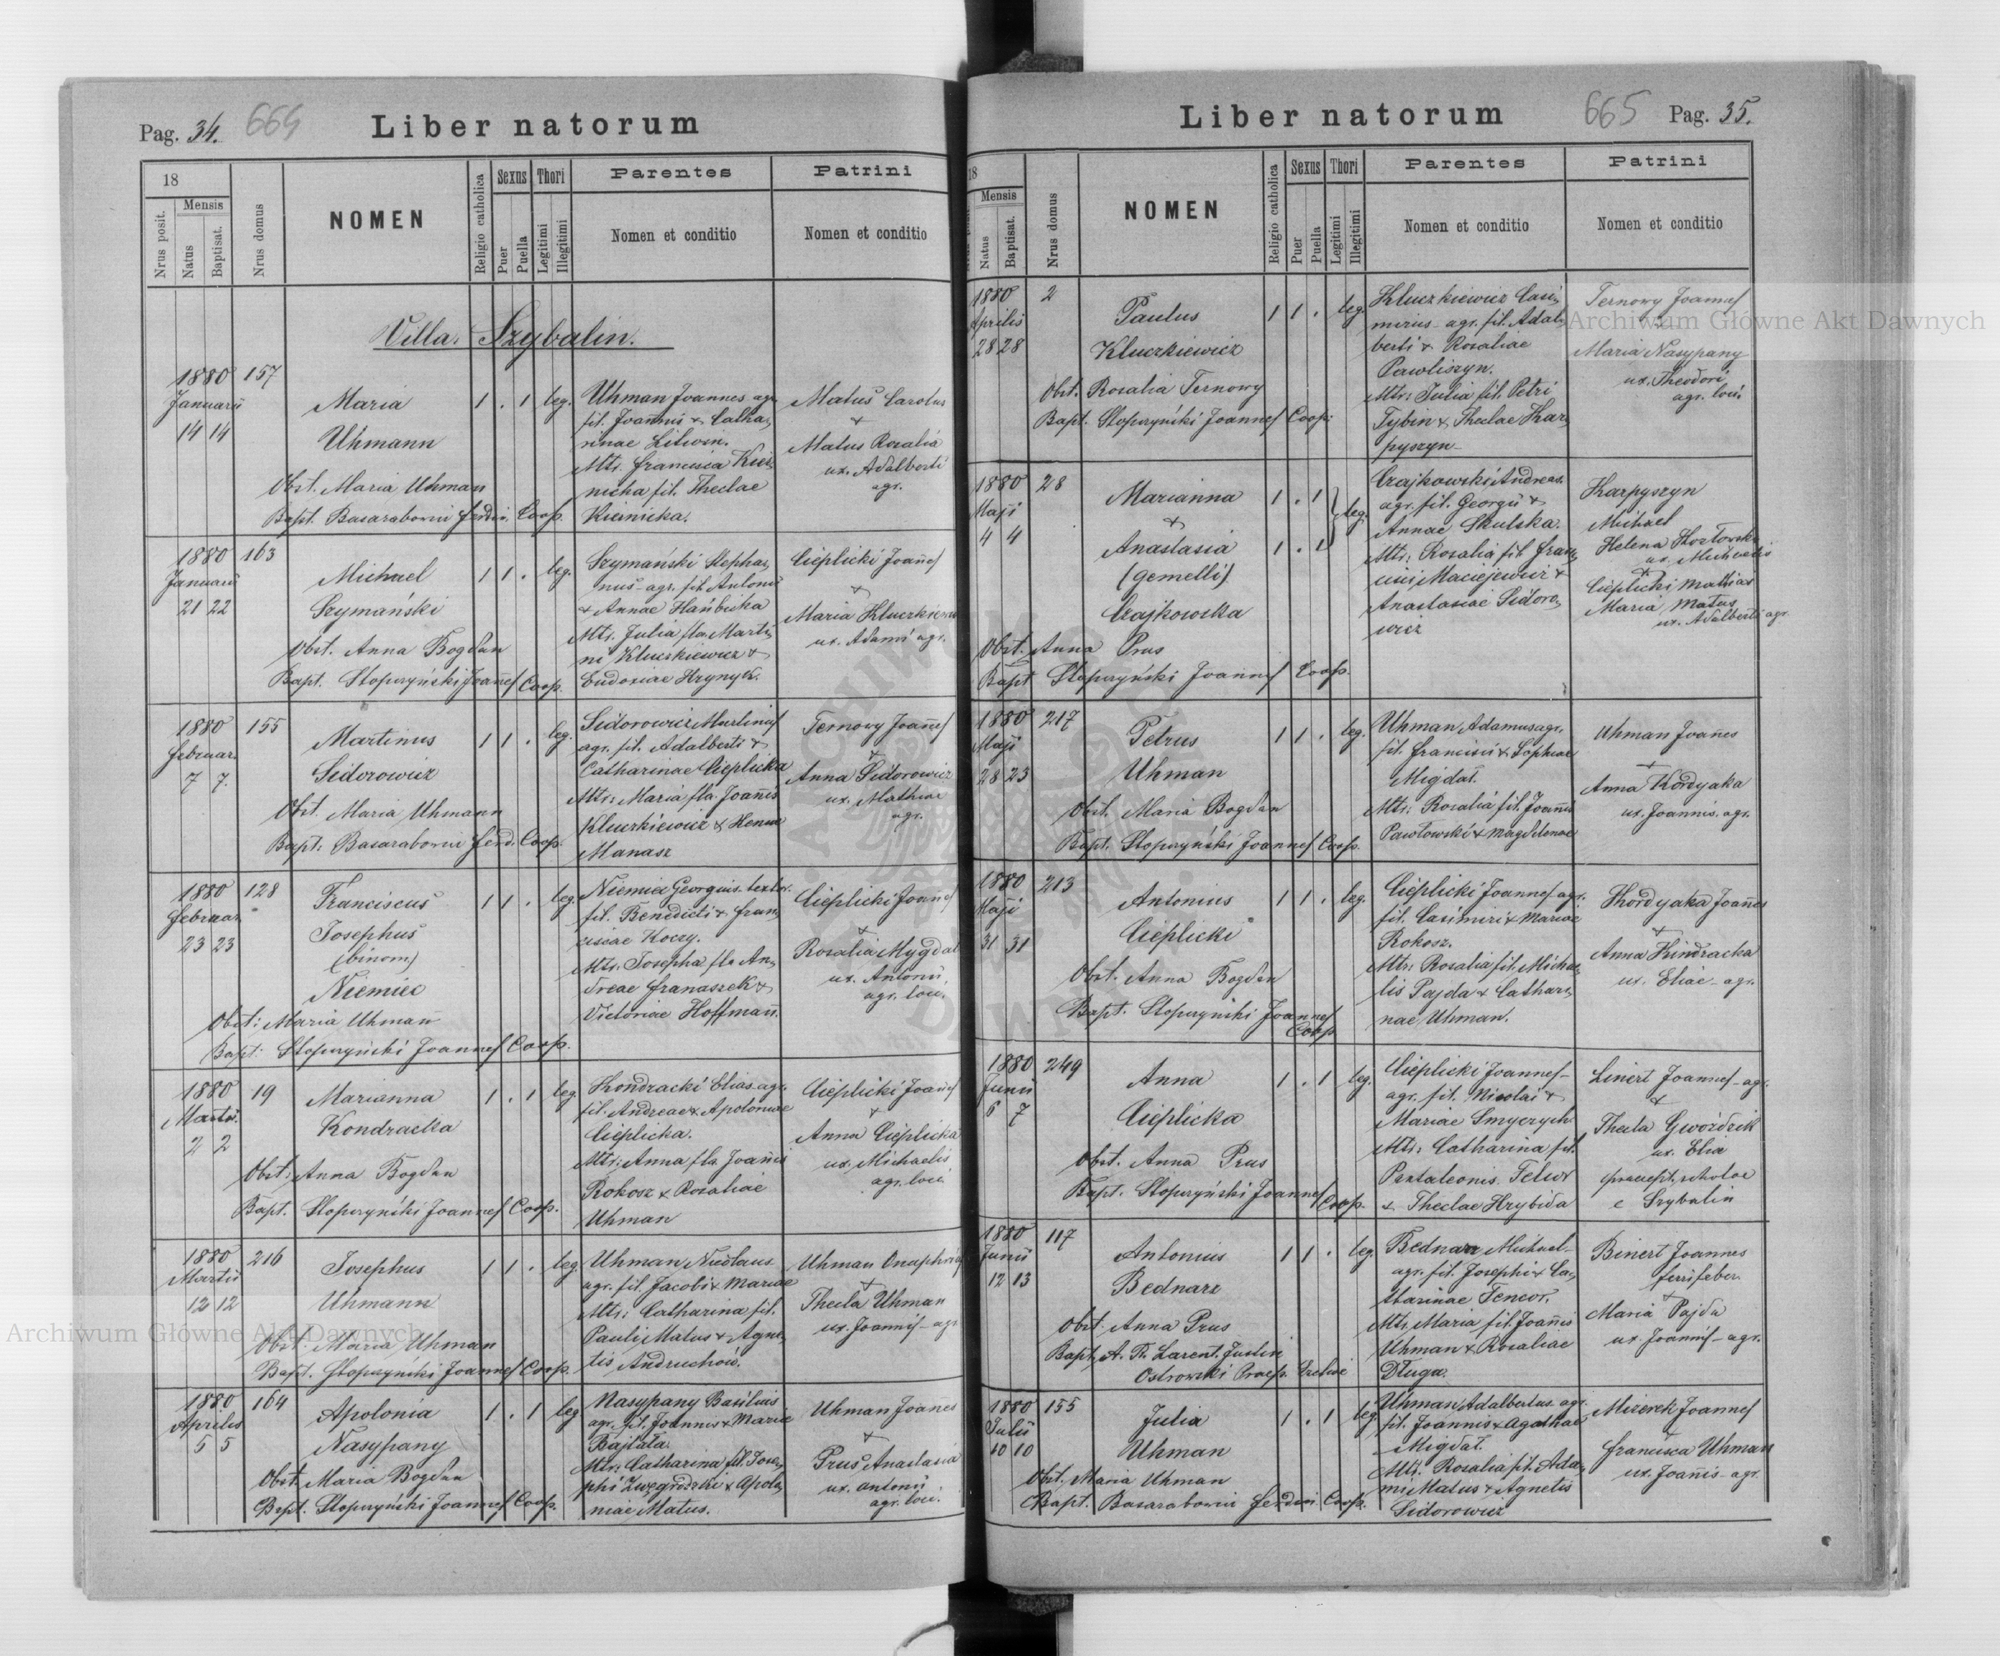 Pag. 34. 664
Liber natorum
18
Nrus posit.
Mensis
Natus
Baptisat.
Nrus domus
NOMEN
Religio catholica
Sexus
Puer
Puella
Thori
Legitimi
Illegitimi
Parentes
Nomen et conditio
Patrini
Nomen et conditio
Villa: Szybalin.
1880
Januarii
14 14
157
Maria
Uhmann
Obst. Maria Uhman
Bapt. Basaraborvii Ferdin. Coop.
1 . 1 leg.
Uhman Joannes agr.
fil. Joannis & Catha,
rinae Litwin.
Mtr. Francisca Kuś,
nicka fil. Theclae
Kuśnicka.
Matus Carolus
+
Matus Rosalia
ux. Adalberti
agr.
1880
Januarii
21 22
163
Michael
Szymański
Obst. Anna Bogdan
Bapt. Stopczyński Joannes Coop.
1 1 . leg.
Szymański Stepha,
nus agr. fil. Antonii
& Annae Hańbicka
Mtr. Julia fla. Marti,
ni Kluczkiewicz &
Eudoxiae Hrynyk.
Cieplicki Joannes
+
Maria Kluczkiewicz
ux. Adami agr.
1880
Februar.
7 7.
155
Martinus
Sidorowicz
Obst. Maria Uhmann
Bapt: Basaraborvii Ferd. Coop.
1 1 . leg.
Sidorowicz Martinus
agr. fil. Adalberti &
Catharinae Cieplicka
Mtr: Maria fla. Joannis
Kluczkiewicz & Hennae
Manasz
Ternowy Joannes
+
Anna Sidorowicz
ux. Mathiae
agr.
1880
Februar.
23 23
128
Franciscus
Josephus
(binom)
Niemiec
Obst: Maria Uhmann
Bapt: Stopczyński Joannes Coop.
1 1 . leg.
Niemiec Georgius textor.
fil. Benedicti & Fran,
ciscae Koczy.
Mtr. Josepha fla An,
dreae Franaszek &
Victoriae Hoffmann.
Cieplicki Joannes
+
Rosalia Mygdal
ux. Antonii,
agr. loci.
1880
Martii.
2 2
19
Marianna
Kondracka
Obst: Anna Bogdan
Bapt. Stopczyński Joannes Coop.
1 . 1 leg.
Kondracki Elias agr.
fil. Andreae & Apoloniae
Cieplicka.
Mtr: Anna fla. Joannis
Rokosz & Rosaliae
Uhman
Cieplicki Joannes
+
Anna Cieplicka
ux. Michaelis
agr. loci
1880
Martii
12 12
216
Josephus
Uhmann
Obst: Maria Uhman
Bapt. Stopczyński Joannes Coop.
1 1 . leg.
Uhman Nicolaus
agr. fil. Jacobi & Mariae
Mtr: Catharina fil.
Pauli Matus & Agne,
tis Andruchów.
Uhman Onuphrius
+
Thecla Uhman
ux. Joannis - agr.
1880
Aprilis
5 5
164
Apolonia
Nasypany
Obst. Maria Bogdan
Bapt. Stopczyński Joannes Coop.
1 . 1 leg
Nasypany Basilius
agr. fil. Joannis & Mariae
Bajtała.
Mtr: Catharina fil. Jose,
phi Zwęgrodzki & Apolo,
niae Matus.
Uhman Joannes
+
Prus Anastasia
ux. Antonii
agr. loci.
Liber natorum
665 Pag. 35.
18
Mensis
Natus
Baptisat.
Nrus domus
NOMEN
Religio catholica
Sexus
Puer
Puella
Thori
Legitimi
Illegitimi
Parentes
Nomen et conditio
Patrini
Nomen et conditio
1880
Aprilis
28 28
2
Paulus
Kluczkiewicz
Obst. Rosalia Ternowy
Bapt. Stopczyński Joannes Coop.
1 1 . leg.
Kluczkiewicz Casi,
mirus - agr. fil. Adal,
berti & Rosaliae
Pawliszyn.
Mtr: Julia fil. Petri
Tybin & Theclae Kar,
pyszyn
Ternowy Joannes
Maria Nasypany
ux. Theodori
agr. loci
1880
Maji
4 4
28
Marianna
&
Anastasia
(gemelli)
Czajkowska
Obst. Anna Prus
Bapt Stopczyński Joannes Coop.
1 . 1
1 . 1
leg.
Czajkowski Andreas.
agr. fil. Georgii &
Annae Skulska.
Mtr: Rosalia fil. Fran,
cisci Maciejewicz &
Anastasiae Sidoro,
wicz
Karpyszyn
Michael
Helena Kozłowska
ux. Michaelis
+
Cieplicki Mathias
Maria Matus
ux. Adalberti agr.
1880
Maji
28 23
217
Petrus
Uhman
Obst. Maria Bogdan
Bapt. Stopczyński Joannes Coop.
1 1 . leg.
Uhman Adamus agr.
fil. Francisci & Sophiae
Migdał.
Mtr: Rosalia fil. Joannis
Pawłowski & Magdalenae
Uhman Joannes
+
Anna Kordyaka
ux. Joannis. agr.
1880
Maji
31 31
213
Antonius
Cieplicki
Obst. Anna Bogdan
Bapt. Stopczyński Joannes
Coop
1 1 . leg.
Cieplicki Joannes agr.
fil. Casimiri & Mariae
Rokosz.
Mtr: Rosalia fil. Micha,
lis Pajda & Cathari,
nae Uhman.
Kordyaka Joannes
+
Anna Kindracka
ux. Eliae - agr.
1880
Junii
6 7
249
Anna
Cieplicka
Obst. Anna Prus
Bapt. Stopczyński Joannes Coop.
1 . 1 leg.
Cieplicki Joannes -
agr. fil. Nicolai &
Mariae Smyczych
Mtr: Catharina fil.
Pantaleonis. Teluk
& Theclae Hrybida
Linert Joannes - agr.
+
Thecla Gwoździk
ux. Elia
praecept. scholae
e Szybalin
1880
Junii
12 13
117
Antonius
Bednarz
Obst. Anna Prus
Bapt. A. R. Larent. Justin
Ostrowski Praep.
1 1 . leg.
Bednarz Michael -
agr. fil. Josephi & Ca,
tharinae Fencor.
Mtr. Maria fil. Joannis
Uhman & Rosaliae
Długa.
Binert Joannes
ferrifeber
+
Maria Pajda
ux. Joannis - agr.
1880
Julii
10 10
155
Julia
Uhman
Obst. Maria Uhman
Bapt. Basaraborvii Ferdin. Coop.
1 . 1 leg.
Uhman Adalbertus agr.
fil. Joannis & Agathae
Migdał.
Mtr. Rosalia fil. Ada,
mi Matus & Agnetis
Sidorowicz
Mizerek Joannes
Francisca Uhman
ux. Joannis - agr.
Archiwum Główne Akt Dawnych
Archiwum Główne Akt Dawnych